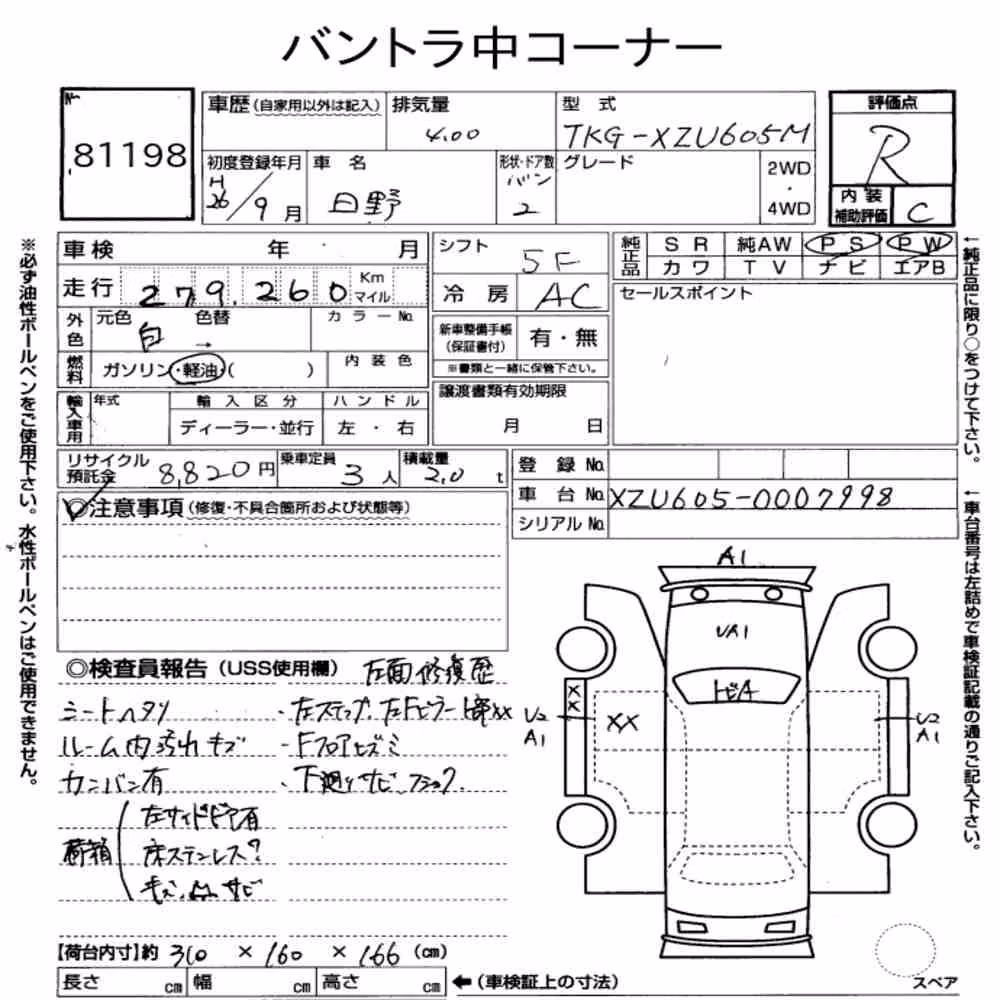 バントラ中コーナー
No. 81198
車歴 (自家用以外は記入) 排気量 4.00 型式 TKG-XZU605M
評価点 R
初度登録年月 H26/9月 車名 日野 形状・ドア数 バン 2 グレード 2WD・4WD
内装補助評価 C
車検 年 月
シフト 5F
純正品 SR 純AW PS PW
カワ TV ナビ エアB
走行 279,260 Km マイル
冷房 AC
セールスポイント
外色 元色 白 色替 → カラーNo.
新車整備手帳 (保証書付) 有・無
※書類と一緒に保管下さい。
燃料 ガソリン・軽油・( ) 内装色
譲渡書類有効期限 月 日
輸入車用 年式 輸入区分 ハンドル
ディーラー・並行 左・右
リサイクル預託金 8,820円 乗車定員 3人 積載量 2.0t
登録No.
車台No. XZU605-0007998
シリアルNo.
◎注意事項 (修復・不具合箇所および状態等)
◎検査員報告 (USS使用欄) 左面修復歴
シートヘタリ ・左ステップ、左Fピラー XX
ルーム内汚れキズ ・Fフロアヒズミ
カンバン有 ・下廻りサビ
荷箱 左サイドドア有
床ステンレス?
キズ、凹、サビ
【荷台内寸】約 310 × 160 × 166 (cm)
長さ cm 幅 cm 高さ cm ←(車検証上の寸法)
※必ず油性ボールペンをご使用下さい。水性ボールペンはご使用できません。
←純正品に限り○をつけて下さい。
←車台番号は左詰めで車検証記載の通りご記入下さい。
A1
UA1
トビA
XX
XX
U2
A1
U2
A1
スペア